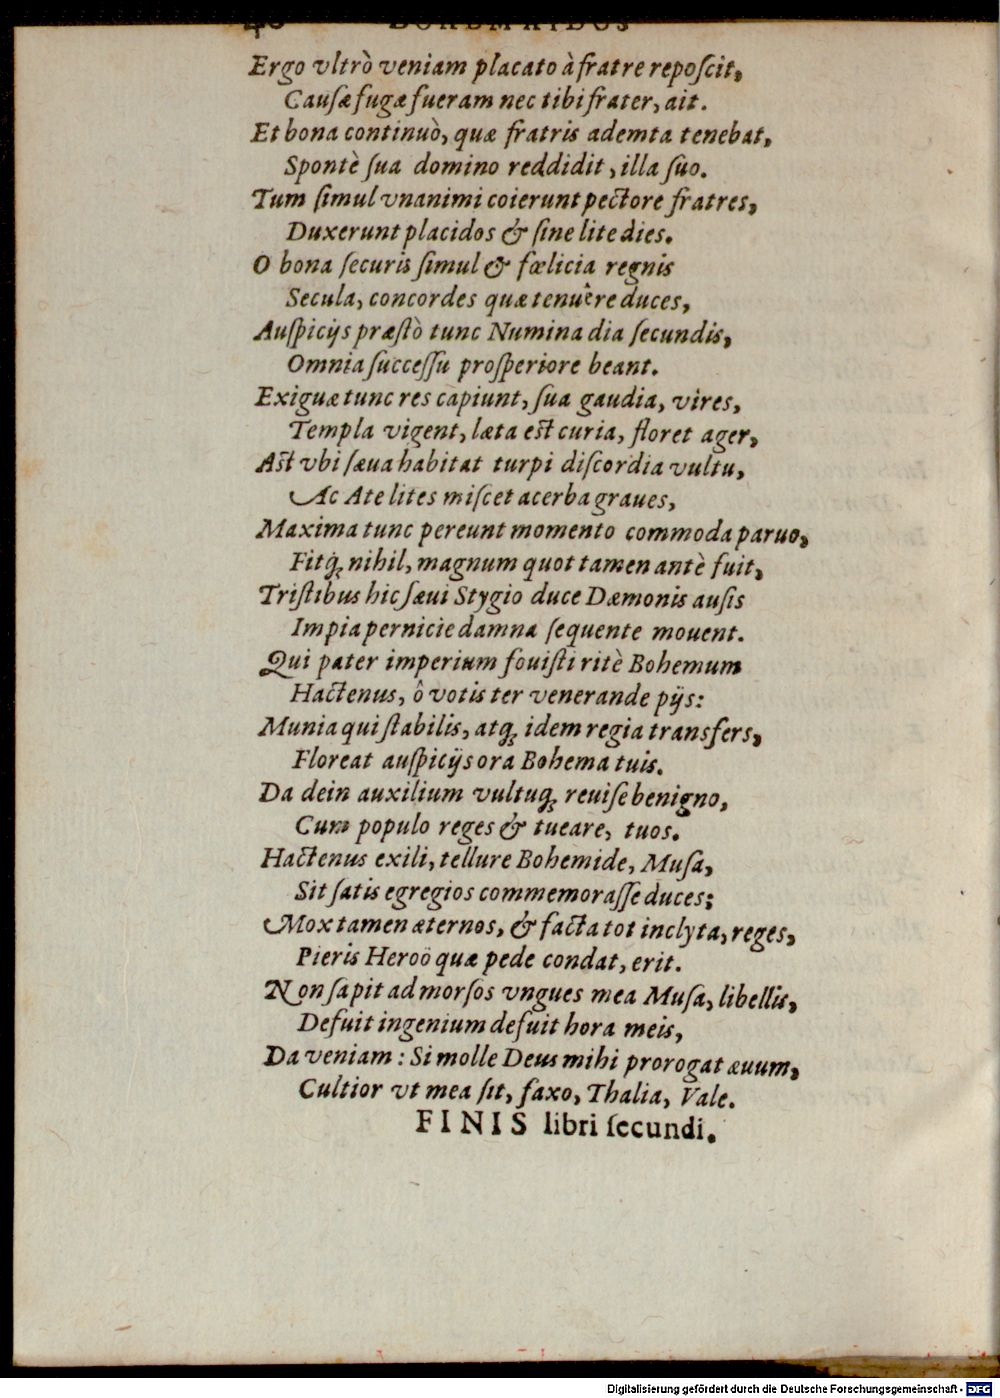 40 BOHEMAIDOS
Ergo vltrò veniam placato à fratre reposcit,
Causæ fugæ fueram nec tibi frater, ait.
Et bona continuò, quæ fratris ademta tenebat,
Spontè sua domino reddidit, illa suo.
Tum simul vnanimi coierunt pectore fratres,
Duxerunt placidos & sine lite dies.
O bona securis simul & fœlicia regnis
Secula, concordes quæ tenuêre duces,
Auspicijs præstò tunc Numina dia secundis,
Omnia successu prosperiore beant.
Exiguæ tunc res capiunt, sua gaudia, vires,
Templa vigent, læta est curia, floret ager,
Ast vbi sæua habitat turpi discordia vultu,
Ac Ate lites miscet acerba graues,
Maxima tunc pereunt momento commoda paruo,
Fitq́; nihil, magnum quot tamen antè fuit,
Tristibus hic sæui Stygio duce Dæmonis ausis
Impia pernicie damna sequente mouent.
Qui pater imperium fouisti ritè Bohemum
Hactenus, ô votis ter venerande pijs:
Munia qui stabilis, atq; idem regia transfers,
Floreat auspicijs ora Bohema tuis.
Da dein auxilium vultuq; reuise benigno,
Cum populo reges & tueare, tuos.
Hactenus exili, tellure Bohemide, Musa,
Sit satis egregios commemorasse duces;
Mox tamen æternos, & facta tot inclyta, reges,
Pieris Heroo quæ pede condat, erit.
Non sapit ad morsos vngues mea Musa, libellis,
Defuit ingenium defuit hora meis,
Da veniam: Si molle Deus mihi prorogat æuum,
Cultior vt mea sit, faxo, Thalia, Vale.
FINIS libri secundi.
Digitalisierung gefördert durch die Deutsche Forschungsgemeinschaft - DFG